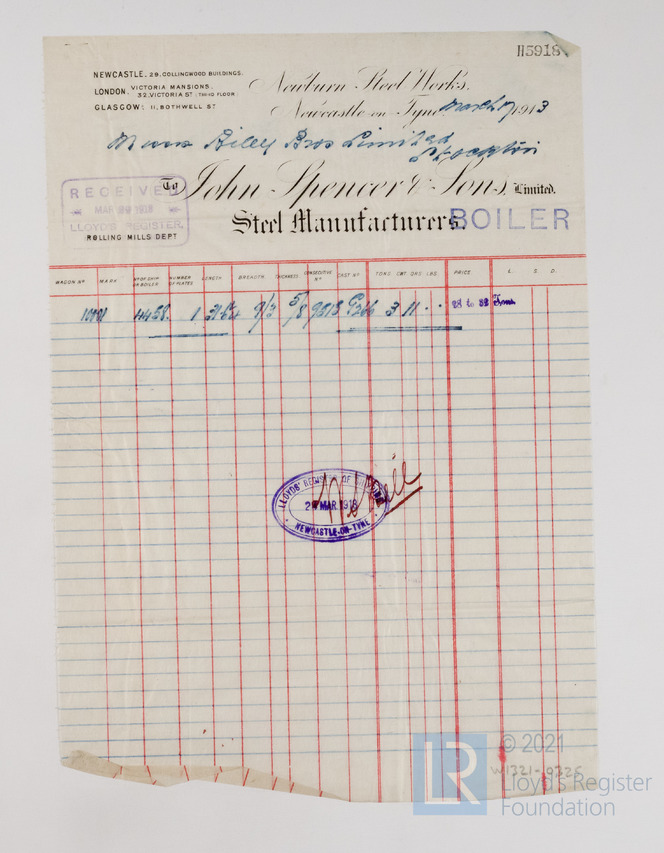 H5918
NEWCASTLE. 29. COLLINGWOOD BUILDINGS.
LONDON. VICTORIA MANSIONS.
32. VICTORIA ST. (THIRD FLOOR)
GLASGOW: 11, BOTHWELL ST
Newburn Steel Works.
Newcastle-on-Tyne, March 1913
Riley Bros Limited
Stockton
To John Spencer & Sons, Limited.
Steel Manufacturers.
BOILER
RECEIVED
MAR 1913
LLOYD'S REGISTER.
ROLLING MILLS DEPT
WAGON Nº MARK Nº OF SHIP OR BOILER NUMBER OF PLATES LENGTH BREADTH THICKNESS CONSECUTIVE Nº CAST Nº TONS CWT QRS LBS. PRICE. L. S. D.
4458. 1 5/8 9518 3 11 . . 28 to 32 Tons
LLOYDS' REGISTER OF SHIPPING
MAR 1913
NEWCASTLE-ON-TYNE
LR
© 2021
Lloyd's Register
Foundation
W1321-0226